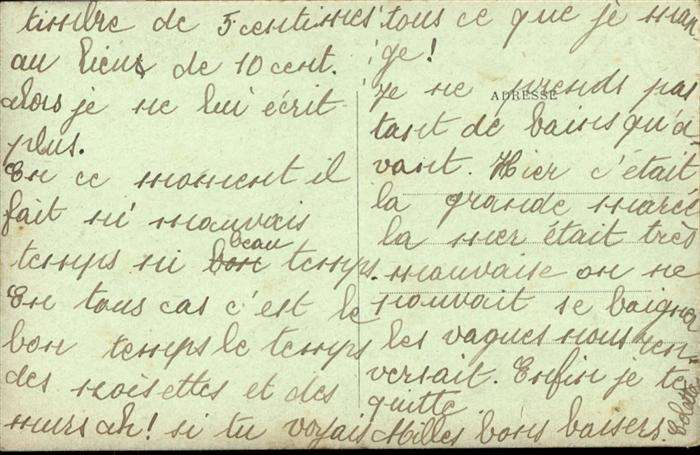 timbre de 5 centimes
au lieus de 10 cent.
alors je ne lui écrit
plus.
En ce moment il
fait ni mauvais
temps ni bon beau temps.
En tous cas c'est le
bon temps le temps
des noisettes et des
murs ah! si tu voyais
tous ce que je man
ge!
ADRESSE
Je ne prends pas
tant de bains qu'a-
vant. Hier c'était
la grande maree
la mer était très
mauvaise on ne
pouvait se baigne
les vagues nous ren
versait. Enfin je te
quitte.
Milles bons baisers.